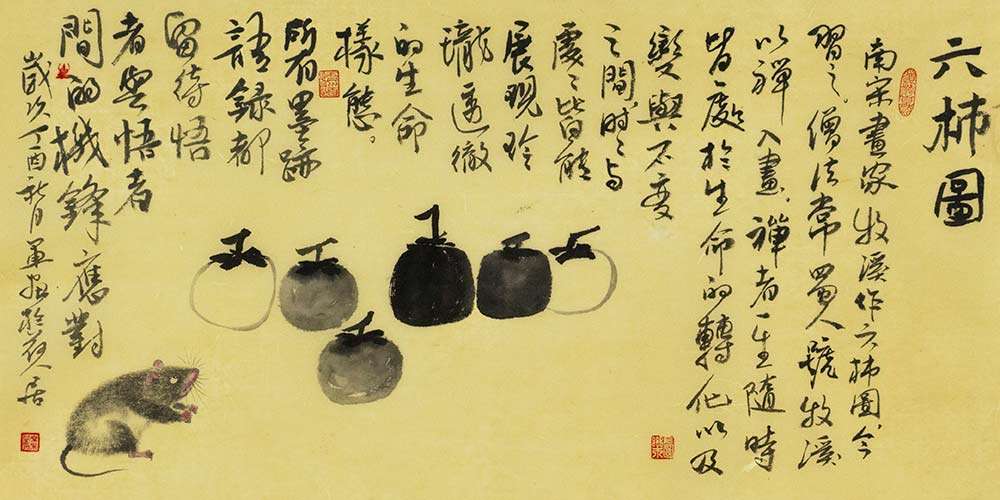 六柿圖
南宋畫家牧溪作六柿圖,今
習之。僧法常蜀人號牧溪
以禪入畫,禪者一生隨時
皆一處於生命的轉化以及
變與不變
之間,時時与
處處皆能
展現玲
瓏透徹
的生命
樣態。
所有墨跡
語錄都
留待悟
者與悟者
間的機鋒應對
歲次丁酉秋月並書於 人居